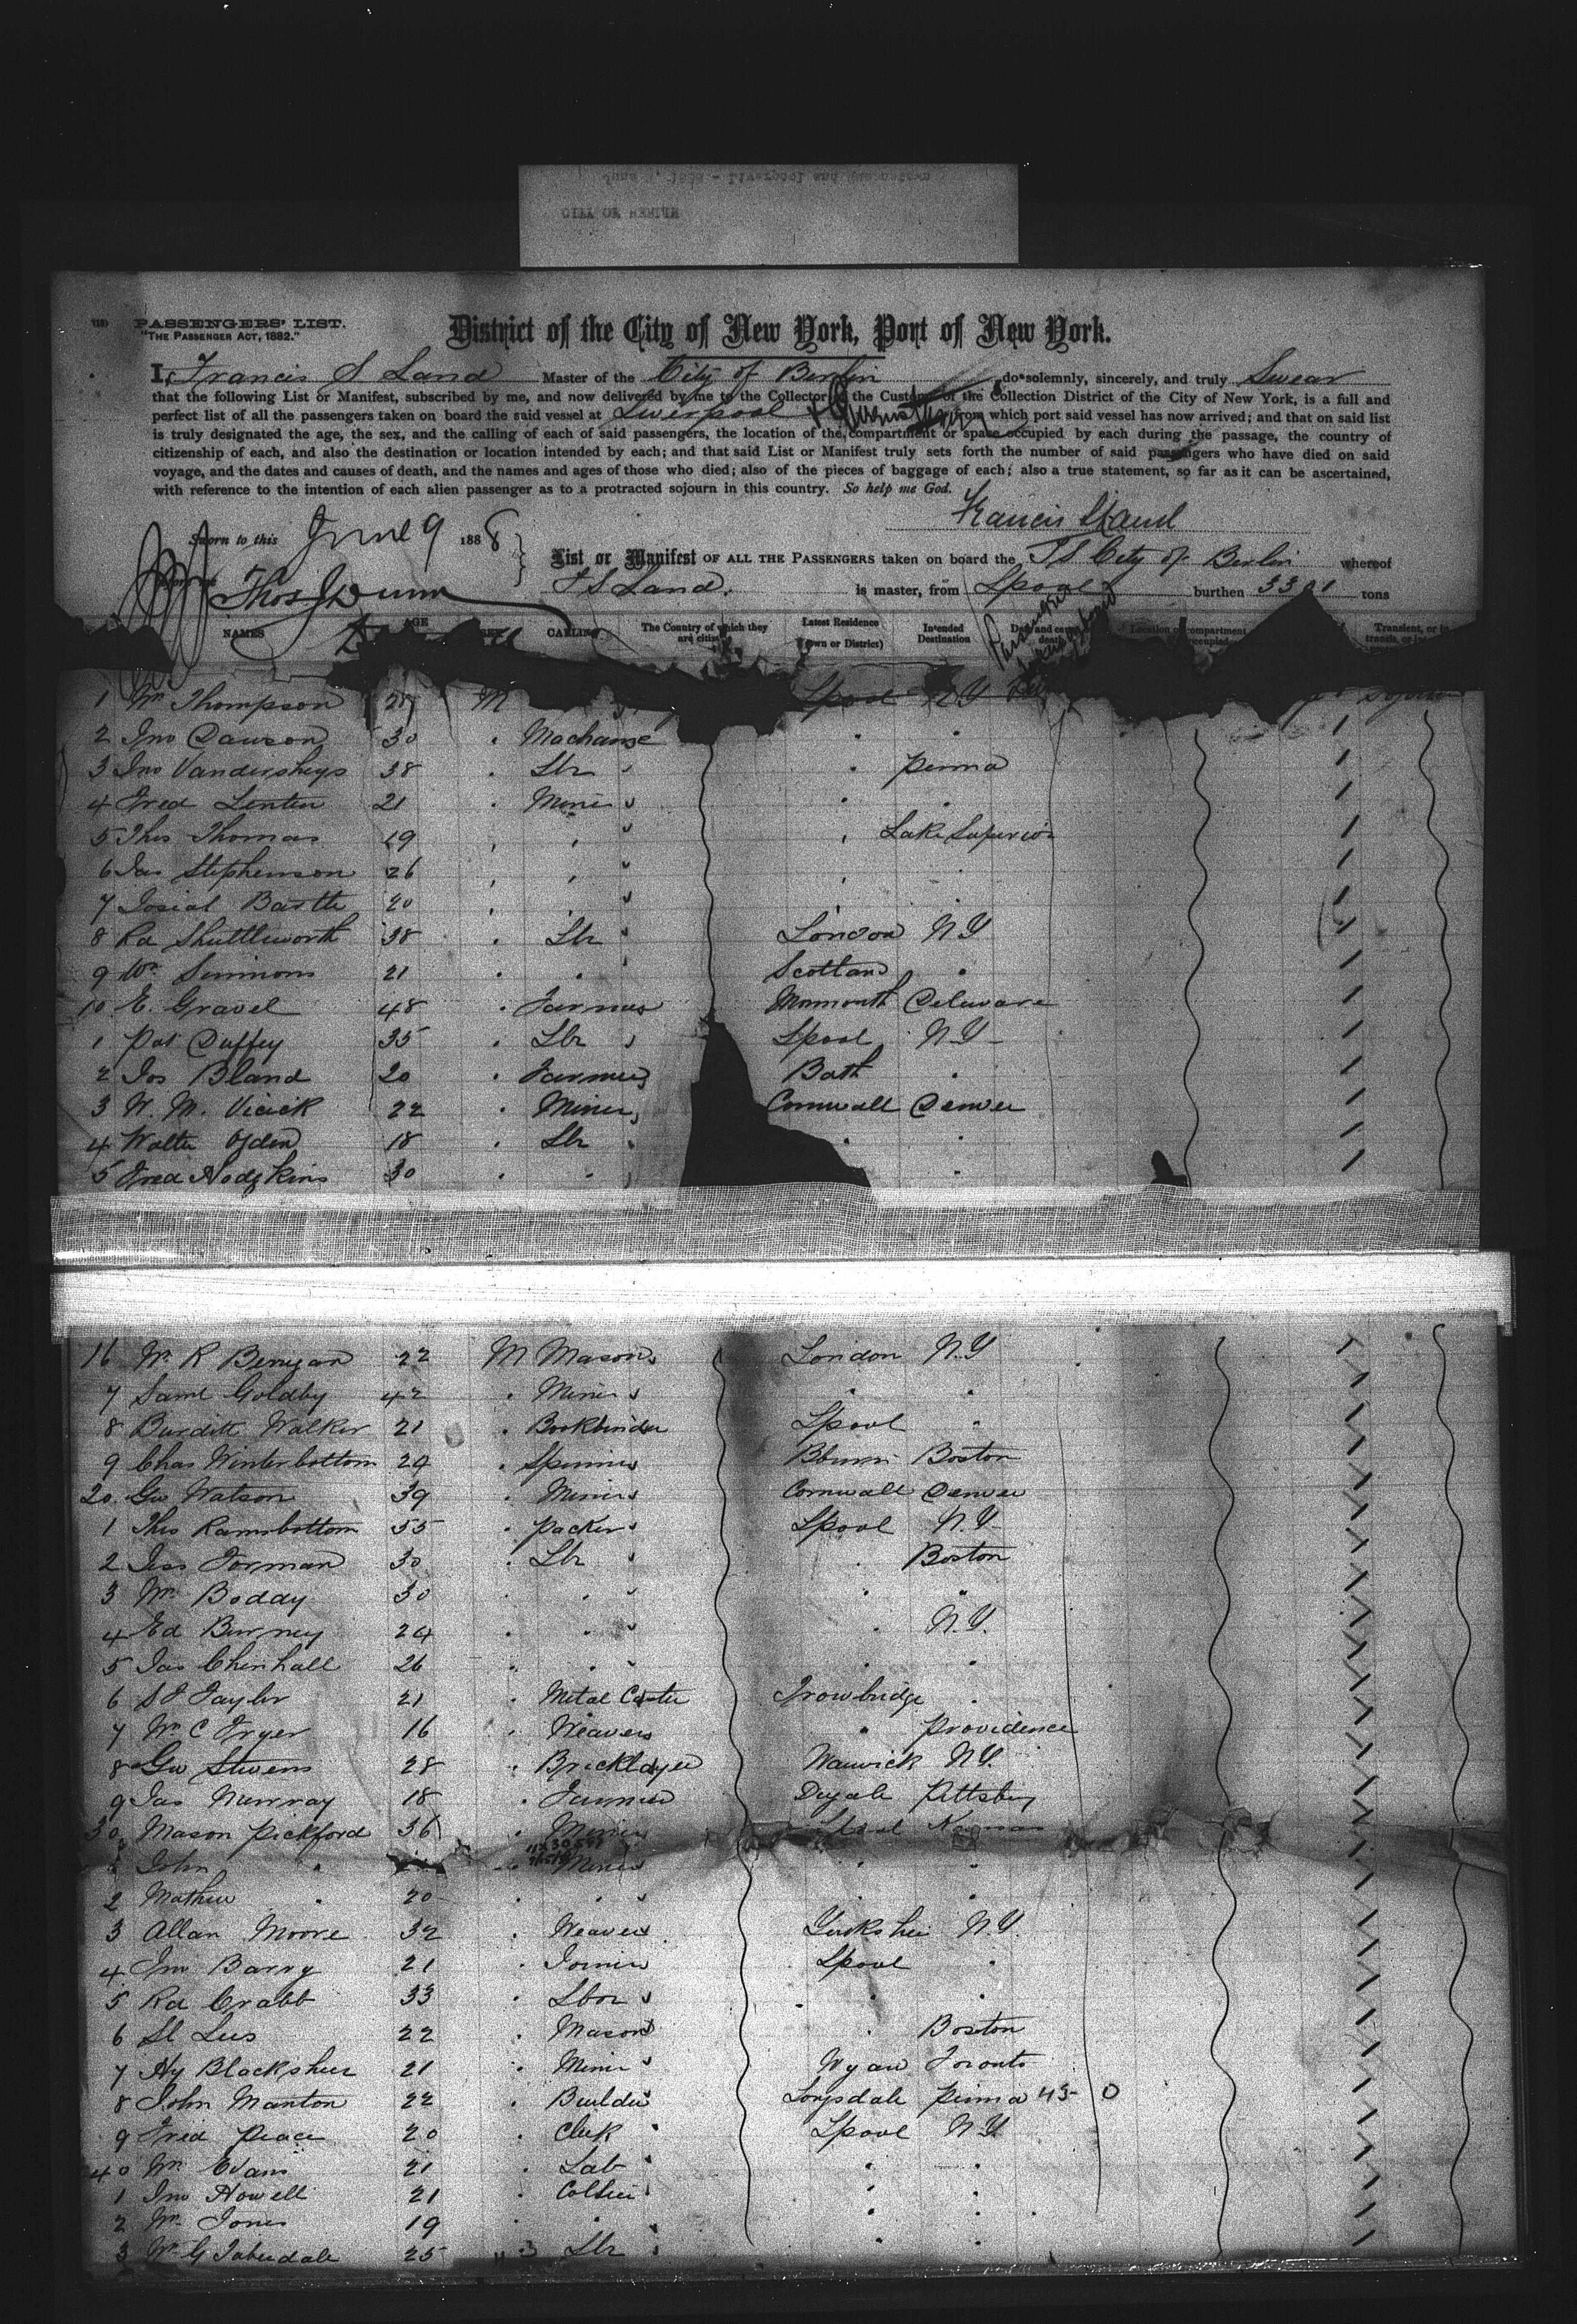 PASSENGERS' LIST.
"THE PASSENGER ACT, 1882."
District of the City of New York, Port of New York.
I, Francis S Land Master of the City of Berlin do solemnly, sincerely, and truly Swear
that the following List or Manifest, subscribed by me, and now delivered by me to the Collector of the Customs of the Collection District of the City of New York, is a full and
perfect list of all the passengers taken on board the said vessel at Liverpool + Queenstown from which port said vessel has now arrived; and that on said list
is truly designated the age, the sex, and the calling of each of said passengers, the location of the compartment or space occupied by each during the passage, the country of
citizenship of each, and also the destination or location intended by each; and that said List or Manifest truly sets forth the number of said passengers who have died on said
voyage, and the dates and causes of death, and the names and ages of those who died; also of the pieces of baggage of each; also a true statement, so far as it can be ascertained,
with reference to the intention of each alien passenger as to a protracted sojourn in this country. So help me God.
Francis S Land
Sworn to this June 9 1888
List or Manifest OF ALL THE PASSENGERS taken on board the SS City of Berlin whereof
Thos J Dunn
F S Land. is master, from Lpool burthen 3301 tons
NAMES AGE SEX CALLING The Country of which they are citizens Latest Residence (Town or District) Intended Destination Location of compartment occupied
1 Wm Thompson 28 M Lpool N Y
2 Jno Dawson 30 "
3 Jno 38 " Lbr " " Penna
4 Fred 21 " Miner " "
5 Thos Thomas 19 " " " " Lake Superior
6 Jas Stephenson 26 " " " " "
7 20 " " "
8 Rd Shuttleworth 38 " Lbr " London N Y
9 Wm Simmons 21 " " " Scotland "
10 E. Gravel 48 " Farmer Monmouth Delaware
1 Pat Duffey 35 " Lbr " Lpool N Y
2 Jos Bland 20 " Farmer Bath "
3 W. M. 22 " Miner Cornwall Denver
4 Walter Ogden 18 " Lbr " " "
5 Fred Hodgkins 30 " " " "
16 Wm R 22 M Mason London N.Y
7 Saml Goldby 42 " Miner " "
8 Burditt Walker 21 " Bookbinder Lpool "
9 Chas Winterbottom 24 " Spinner Boston
20 Geo Watson 39 " Miner Cornwall Denver
1 Thos Ramsbottom 55 " Packer Lpool N.Y
2 Forman 30 " Lbr " " Boston
3 Wm Boddy 30 " " " " "
4 Ed 24 " " " " N.Y.
5 Jas Chinhall 26 " " " " "
6 S J Taylor 21 " Metal Trowbridge "
7 Wm C Fryer 16 " Weaver " Providence
8 Geo Stevens 28 " Bricklayer Warwick N.Y.
9 Jas Murray 18 " Farmer Pittsburg
30 Mason Pickford 36 " Miner Lpool
1 John " " Miner " "
2 Mathew " 20 " " " " "
3 Allan Moore 32 " Weaver N.Y.
4 Jno Barry 21 " Joiner Lpool "
5 Rd Crabb 33 " Lbor " " "
6 Lees 22 " Mason " Boston
7 Hy 21 " Miner " Toronto
8 John Manton 22 " Builder Penna 45 0
9 Fred Peace 20 " Clerk " Lpool N.Y
40 Wm Evans 21 " Lab " " "
1 Jno Howell 21 " Collier " "
2 Wm Jones 19 " " " " "
3 Wm G 25 " Lbr " " "